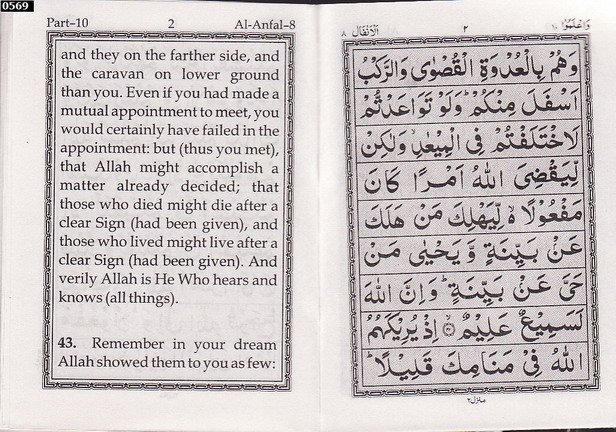 0569
Part-10 2 Al-Anfal-8
and they on the farther side, and
the caravan on lower ground
than you. Even if you had made a
mutual appointment to meet, you
would certainly have failed in the
appointment: but (thus you met),
that Allah might accomplish a
matter already decided; that
those who died might die after a
clear Sign (had been given), and
those who lived might live after a
clear Sign (had been given). And
verily Allah is He Who hears and
knows (all things).
43. Remember in your dream
Allah showed them to you as few:
وَاعْلَمُوْۤا ١٠ ٢ اَلْاَنْفَال ٨
وَهُمْ بِالْعُدْوَةِ الْقُصْوٰى وَالرَّكْبُ
اَسْفَلَ مِنْكُمْ ؕ وَلَوْ تَوَاعَدْتُّمْ
لَاخْتَلَفْتُمْ فِى الْمِيْعٰدِ ۙ وَلٰكِنْ
لِّيَقْضِىَ اللّٰهُ اَمْرًا كَانَ
مَفْعُوْلًا ۙ۬ لِّيَهْلِكَ مَنْ هَلَكَ
عَنْ بَيِّنَةٍ وَّيَحْيٰى مَنْ
حَىَّ عَنْ بَيِّنَةٍ ؕ وَاِنَّ اللّٰهَ
لَسَمِيْعٌ عَلِيْمٌ ۙ‏﴿۴۲﴾ اِذْ يُرِيْكَهُمُ
اللّٰهُ فِىْ مَنَامِكَ قَلِيْلًا ؕ
منزل ٢